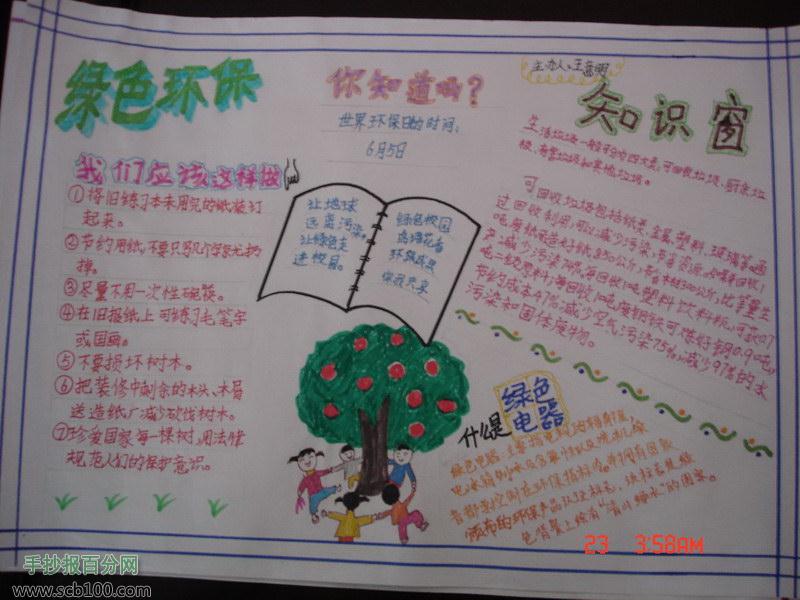 绿色环保
你知道吗？
世界环保日的时间：
6月5日
知识窗
我们应该这样做
①将旧练习本未用完的纸装订
起来。
②节约用纸，不要只写几个字就扔
掉。
③尽量不用一次性碗筷。
④在旧报纸上可练习毛笔字
或国画。
⑤不要损坏树木。
⑥把装修中剩余的木头、木屑
送造纸厂减少砍伐树木。
⑦珍爱国家每一棵树，用法律
规范人们的保护意识。
让地球
远离污染。
让绿色走
进校园。
绿色校园
鸟语花香
环保成果
你我共享
生活垃圾一般可分为四大类：可回收垃圾、厨余垃
圾、有害垃圾和其他垃圾。
可回收垃圾包括纸类、金属、塑料、玻璃等，通
过回收利用，可以减少污染，节省资源。如每回收1
吨废纸可造好纸850公斤，节省木材300公斤，比等量生
产减少污染74%；每回收1吨塑料饮料瓶，可获0.7
吨二级塑料；每回收1吨废钢铁可炼好钢0.9吨，
节约成本47%，减少空气污染75%，减少97%的水
污染和固体废物。
什么是
绿色
电器
23 3:58AM
手抄报百分网
www.scb100.com